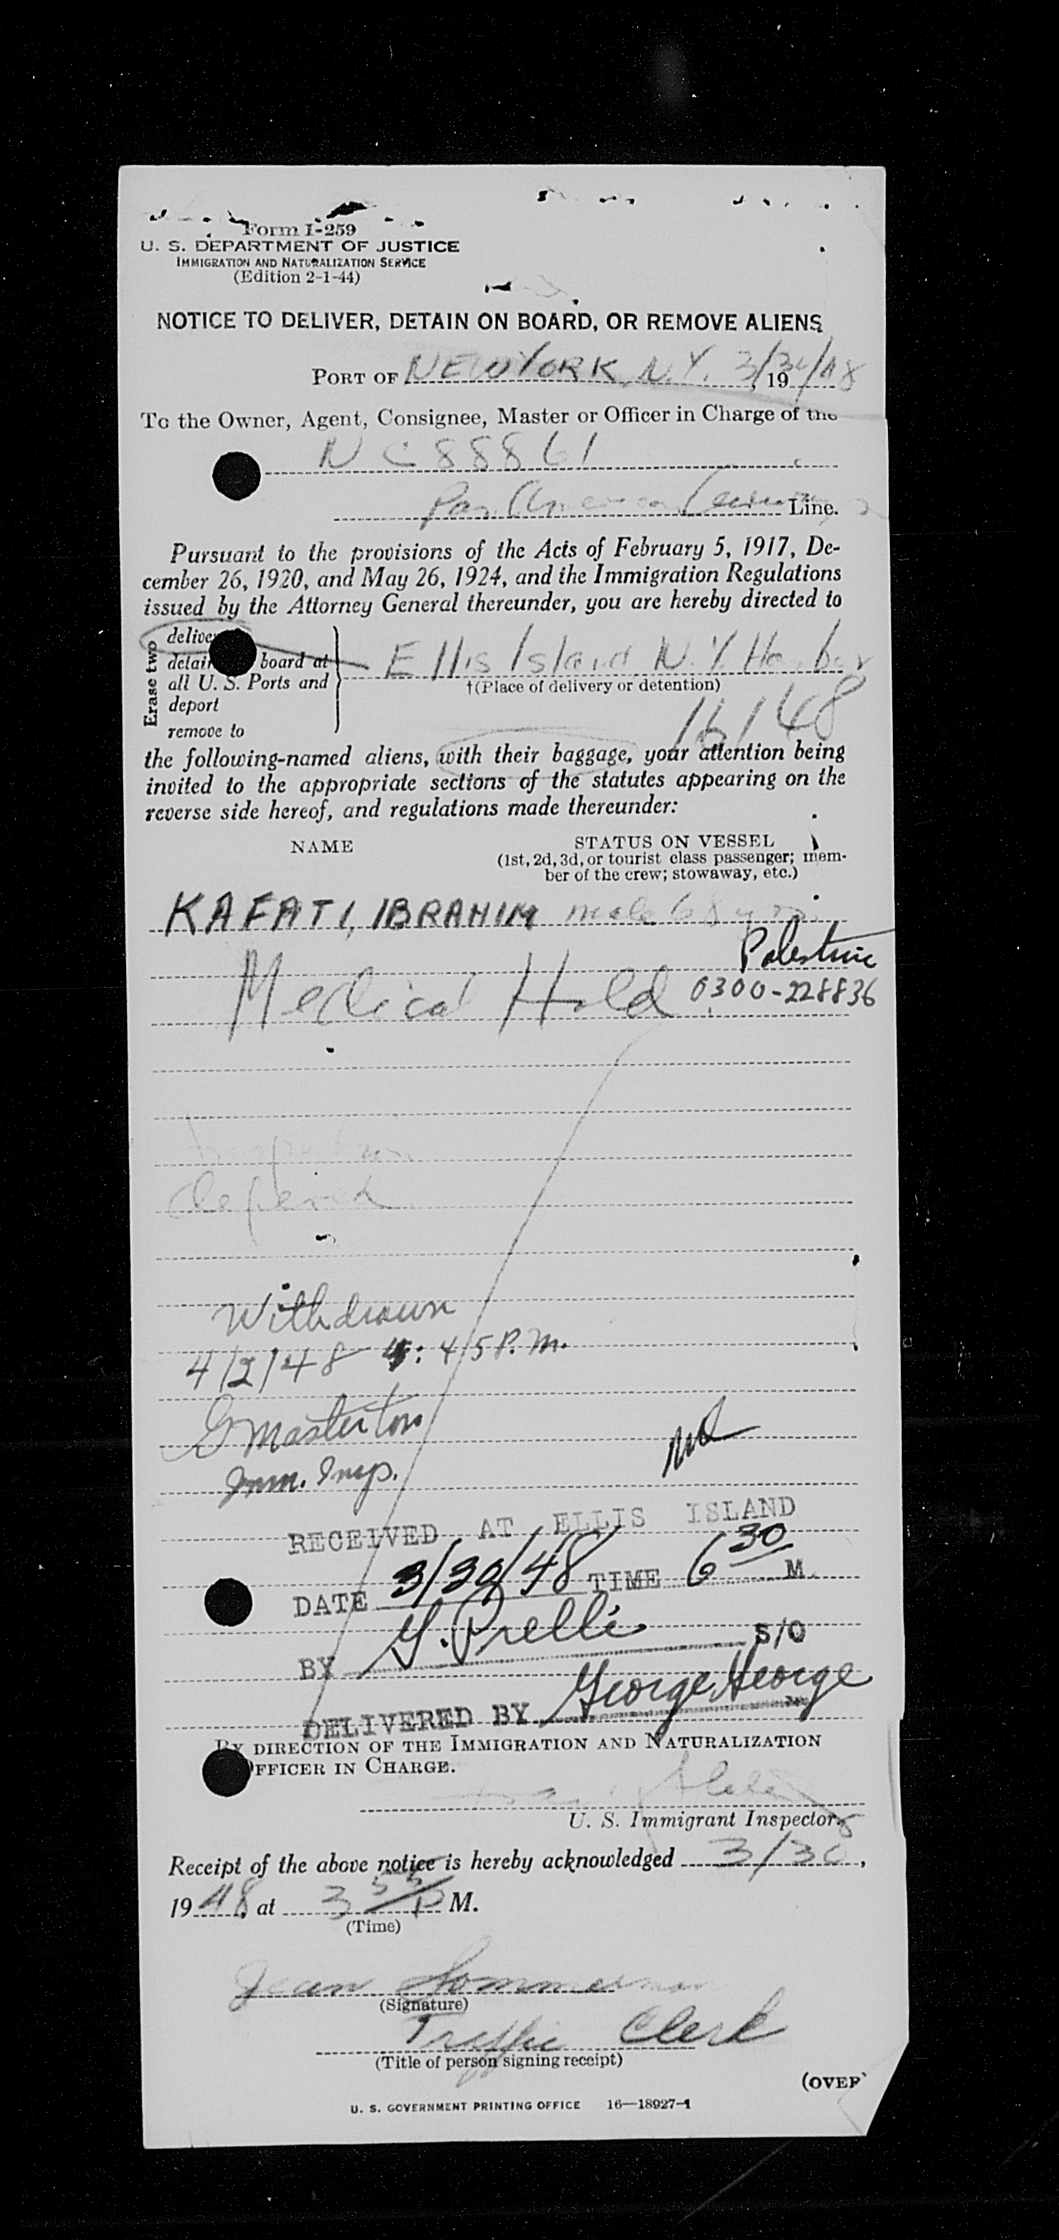 Form I-259
U. S. DEPARTMENT OF JUSTICE
IMMIGRATION AND NATURALIZATION SERVICE
(Edition 2-1-44)
NOTICE TO DELIVER, DETAIN ON BOARD, OR REMOVE ALIENS
PORT OF NEW YORK, N.Y. 3/30/48, 19
To the Owner, Agent, Consignee, Master or Officer in Charge of the
NC 88861
Pan American Line.
Pursuant to the provisions of the Acts of February 5, 1917, De-
cember 26, 1920, and May 26, 1924, and the Immigration Regulations
issued by the Attorney General thereunder, you are hereby directed to
Erase two
deliver
detain board at Ellis Island N.Y. Harbor
all U. S. Ports and †(Place of delivery or detention)
deport
remove to
the following-named aliens, with their baggage, your attention being
invited to the appropriate sections of the statutes appearing on the
reverse side hereof, and regulations made thereunder:
NAME STATUS ON VESSEL
(1st, 2d, 3d, or tourist class passenger; mem-
ber of the crew; stowaway, etc.)
KAFATI, IBRAHIM male 68 yrs.
Palestine
Medical Hold 0300-228836
Withdrawn
4/2/48 4:45 P.M.
G Masterton
Imm. Insp.
RECEIVED AT ELLIS ISLAND
DATE 3/30/48 TIME 6 30 M
BY G. Prelli S/O
DELIVERED BY George George
BY DIRECTION OF THE IMMIGRATION AND NATURALIZATION
OFFICER IN CHARGE.
U. S. Immigrant Inspector.
Receipt of the above notice is hereby acknowledged 3/30,
1948, at 3 55 P M.
(Time)
Jean Sommerman
(Signature)
Traffic Clerk
(Title of person signing receipt)
(OVER)
U. S. GOVERNMENT PRINTING OFFICE 16—18927-1